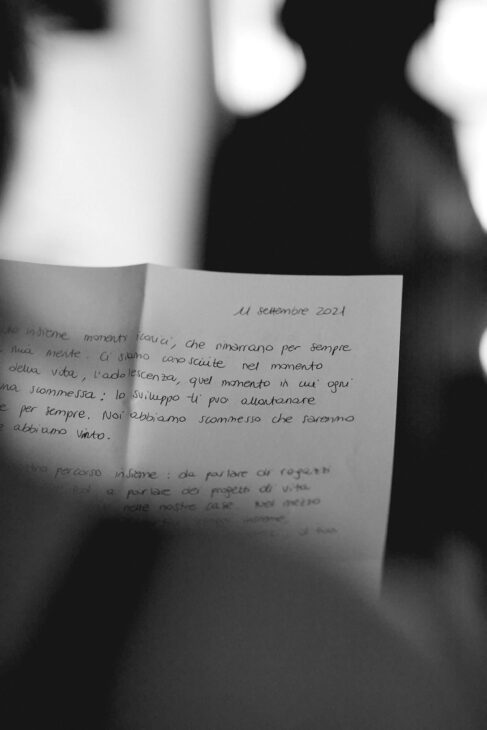 11 settembre 2021
insieme momenti iconici, che rimarrano per sempre
mia mente. Ci siamo conosciute nel momento
della vita, l'adolescenza, quel momento in cui ogni
una scommessa: lo sviluppo ti può allontanare
per sempre. Noi abbiamo scommesso che saremmo
e abbiamo vinto.
percorso insieme: da parlare di ragazzi
a parlare dei progetti di vita
nelle nostre case. Nel mezzo
insieme,